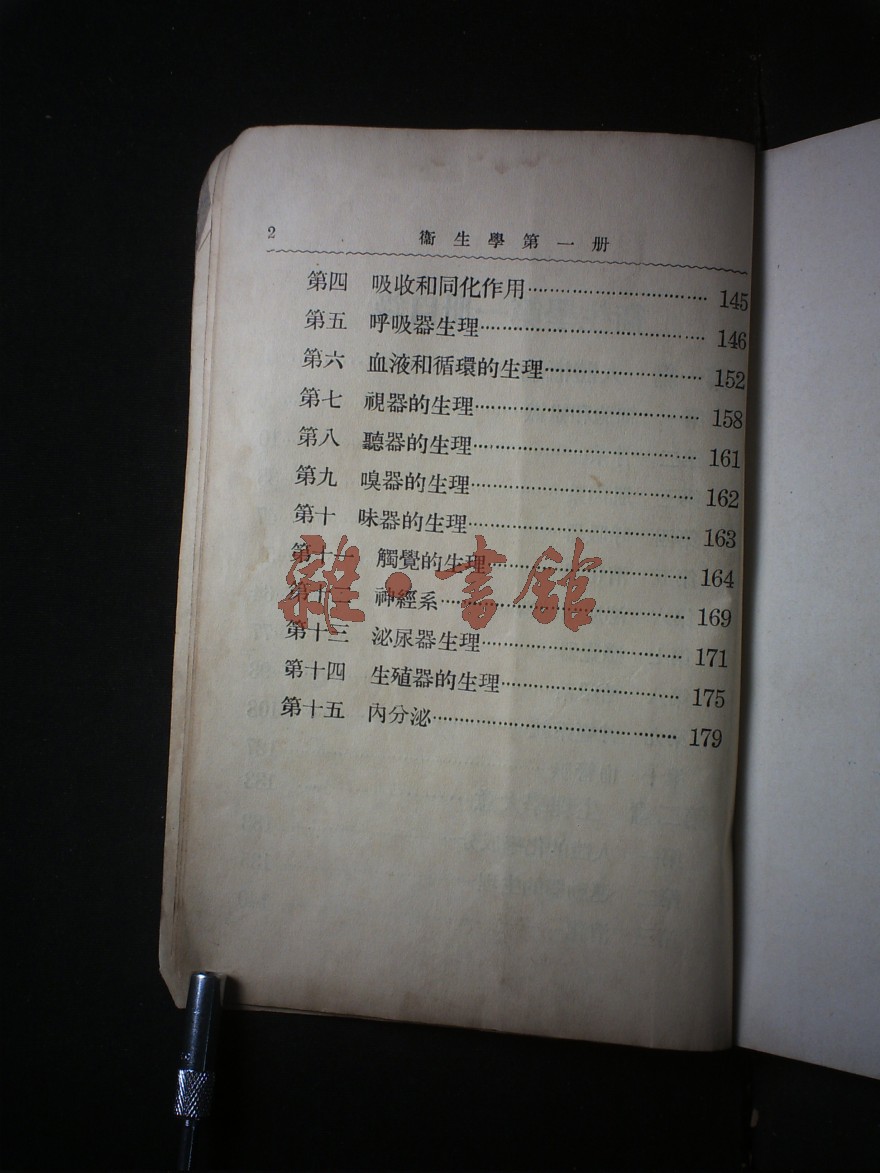 2 衞生學第一册
第四 吸收和同化作用 145
第五 呼吸器生理 146
第六 血液和循環的生理 152
第七 視器的生理 158
第八 聽器的生理 161
第九 嗅器的生理 162
第十 味器的生理 163
第十一 觸覺的生理 164
第十二 神經系 169
第十三 泌尿器生理 171
第十四 生殖器的生理 175
第十五 內分泌 179
雜·書館